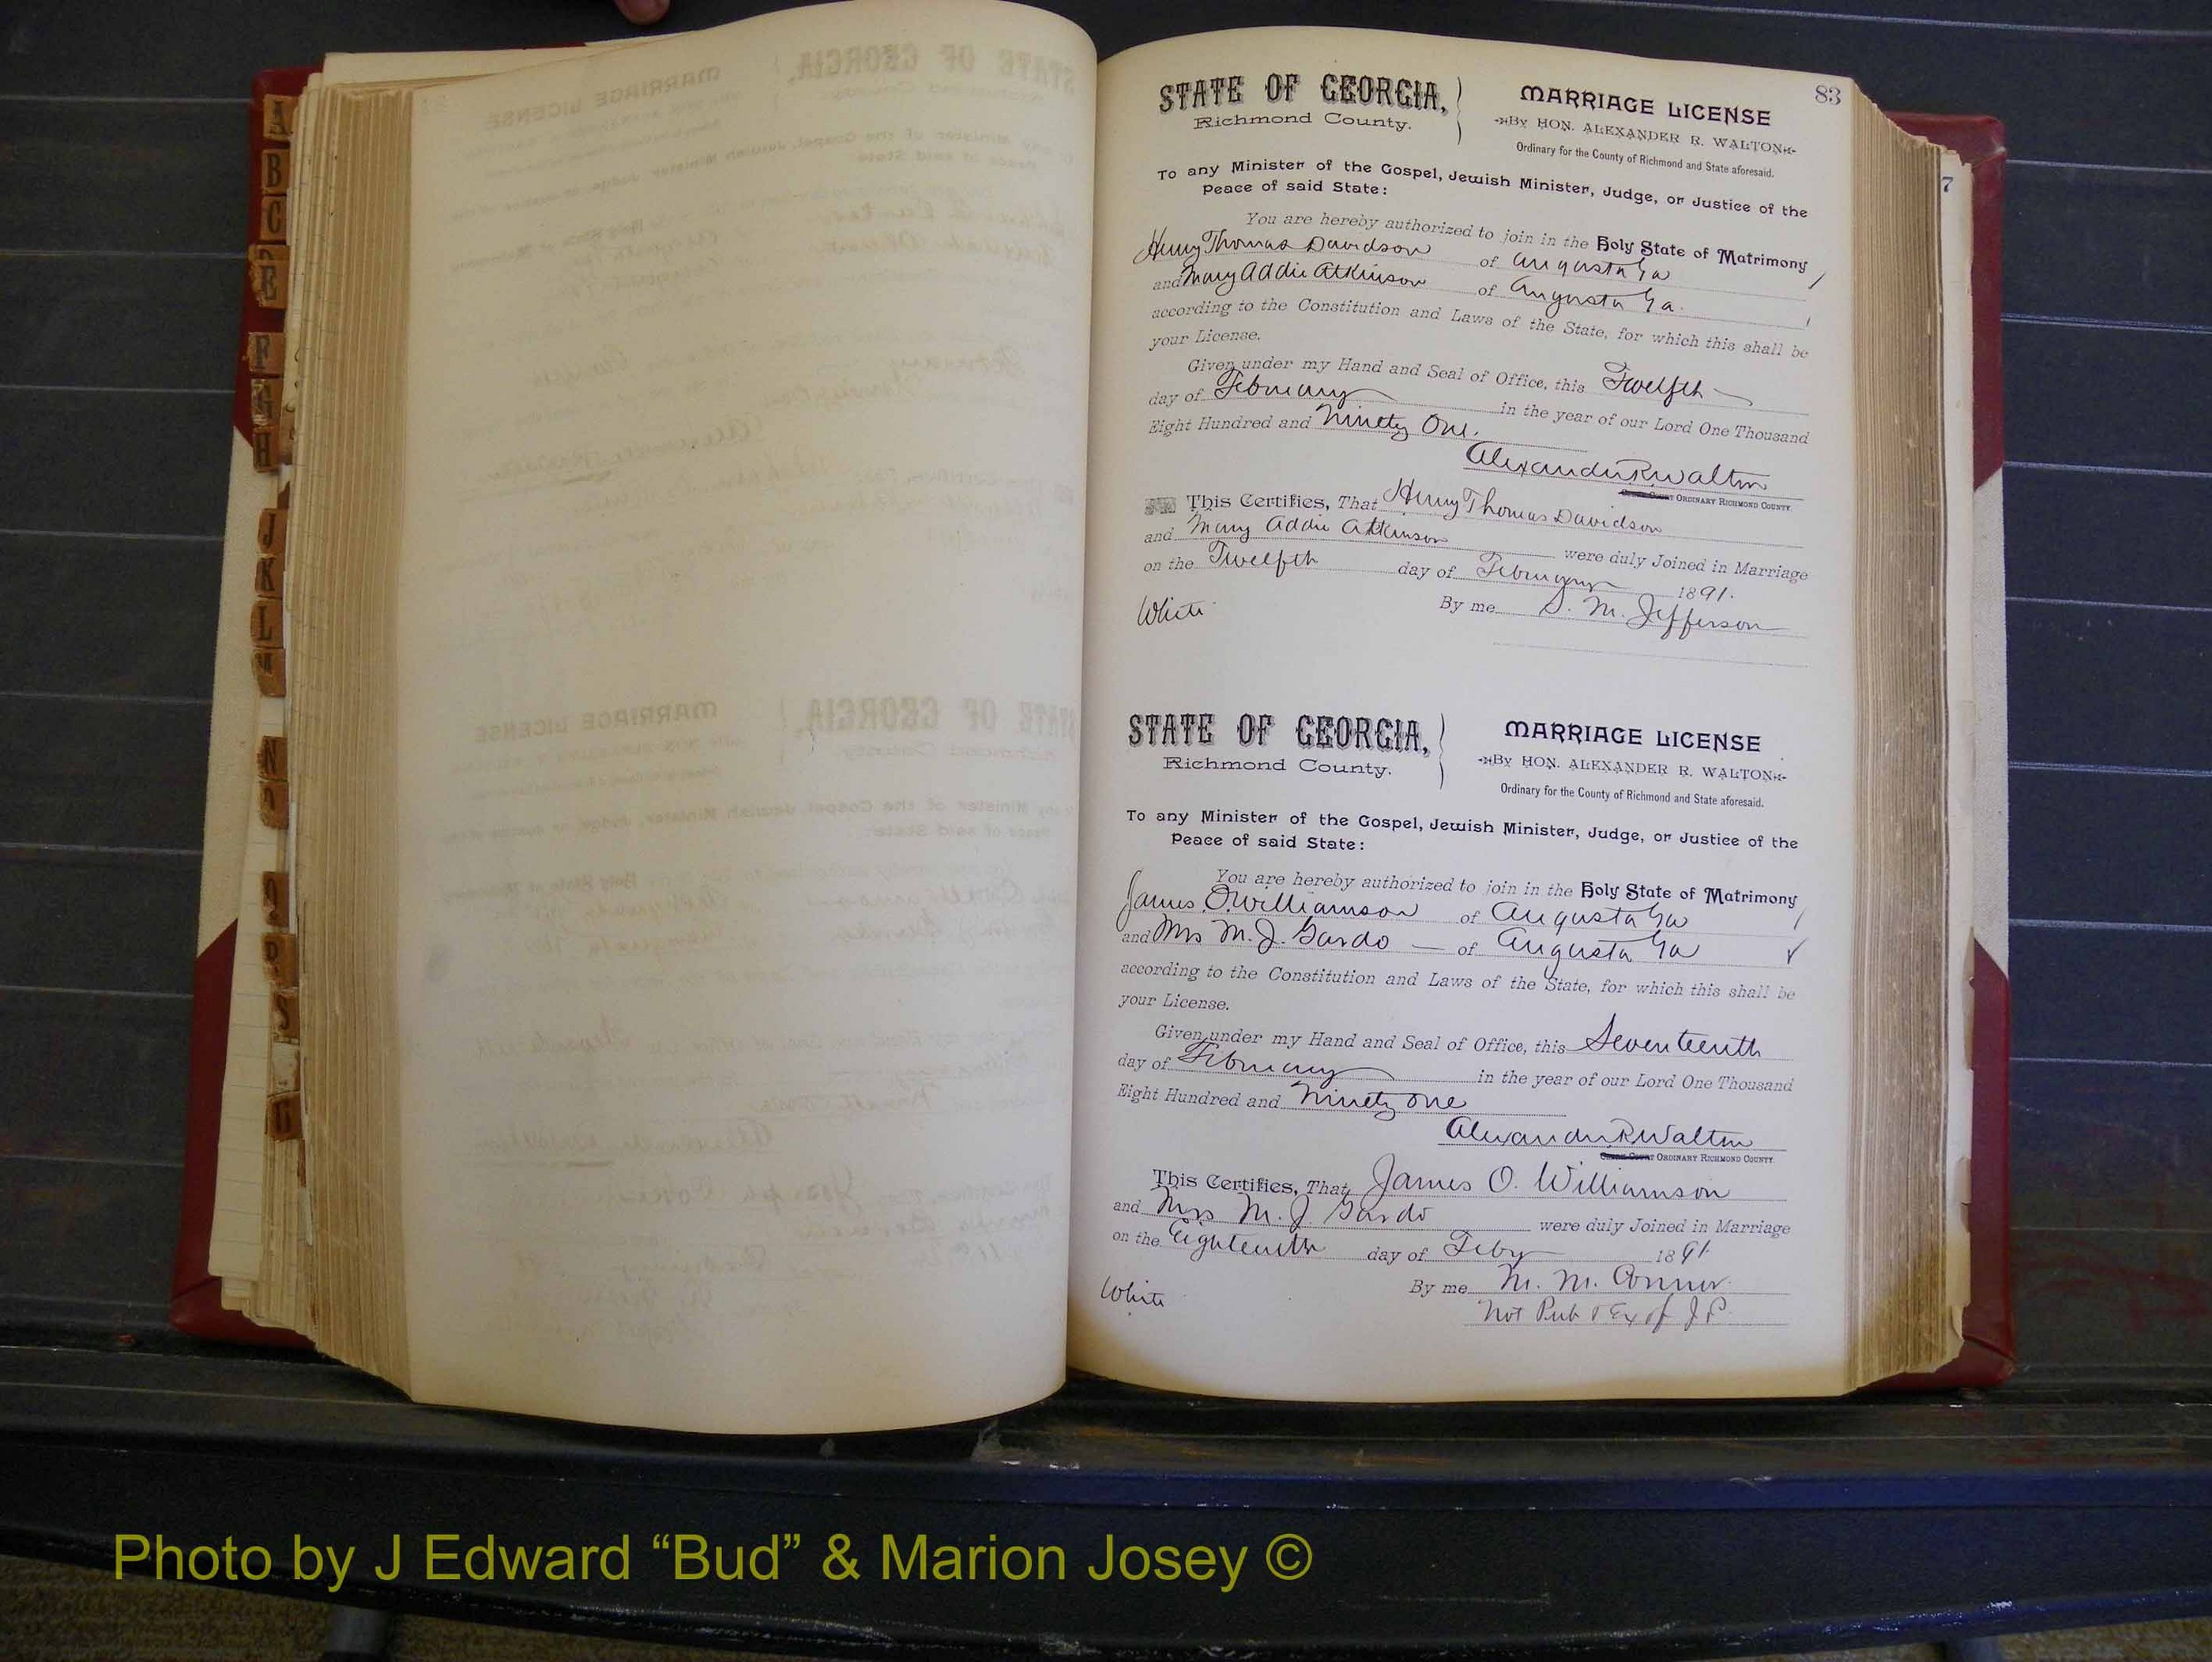 A
B
C
E
F
G
H
J
K
L
M
N
O
Q
R
S
83
7
STATE OF GEORGIA,
Richmond County.
MARRIAGE LICENSE
By HON. ALEXANDER R. WALTON
Ordinary for the County of Richmond and State aforesaid.
To any Minister of the Gospel, Jewish Minister, Judge, or Justice of the
Peace of said State:
You are hereby authorized to join in the Holy State of Matrimony
Henry Thomas Davidson of Augusta Ga
and Mary Addie Atkinson of Augusta Ga.
according to the Constitution and Laws of the State, for which this shall be
your License.
Given under my Hand and Seal of Office, this Twelfth
day of February in the year of our Lord One Thousand
Eight Hundred and Ninety One.
Alexander R Walton
ORDINARY RICHMOND COUNTY.
This Certifies, That Henry Thomas Davidson
and Mary Addie Atkinson were duly Joined in Marriage
on the Twelfth day of February 1891.
White By me S. M. Jefferson
STATE OF GEORGIA,
Richmond County.
MARRIAGE LICENSE
By HON. ALEXANDER R. WALTON
Ordinary for the County of Richmond and State aforesaid.
To any Minister of the Gospel, Jewish Minister, Judge, or Justice of the
Peace of said State:
You are hereby authorized to join in the Holy State of Matrimony
James O. Williamson of Augusta Ga
and Mrs M. J. Gardo of Augusta Ga
according to the Constitution and Laws of the State, for which this shall be
your License.
Given under my Hand and Seal of Office, this Seventeenth
day of February in the year of our Lord One Thousand
Eight Hundred and Ninety One
Alexander R Walton
ORDINARY RICHMOND COUNTY.
This Certifies, That James O. Williamson
and Mrs M. J. Gardo were duly Joined in Marriage
on the Eighteenth day of Feby 1891
White By me M. M. Connor
Not Pub & Ex of J. P.
Photo by J Edward “Bud” & Marion Josey ©